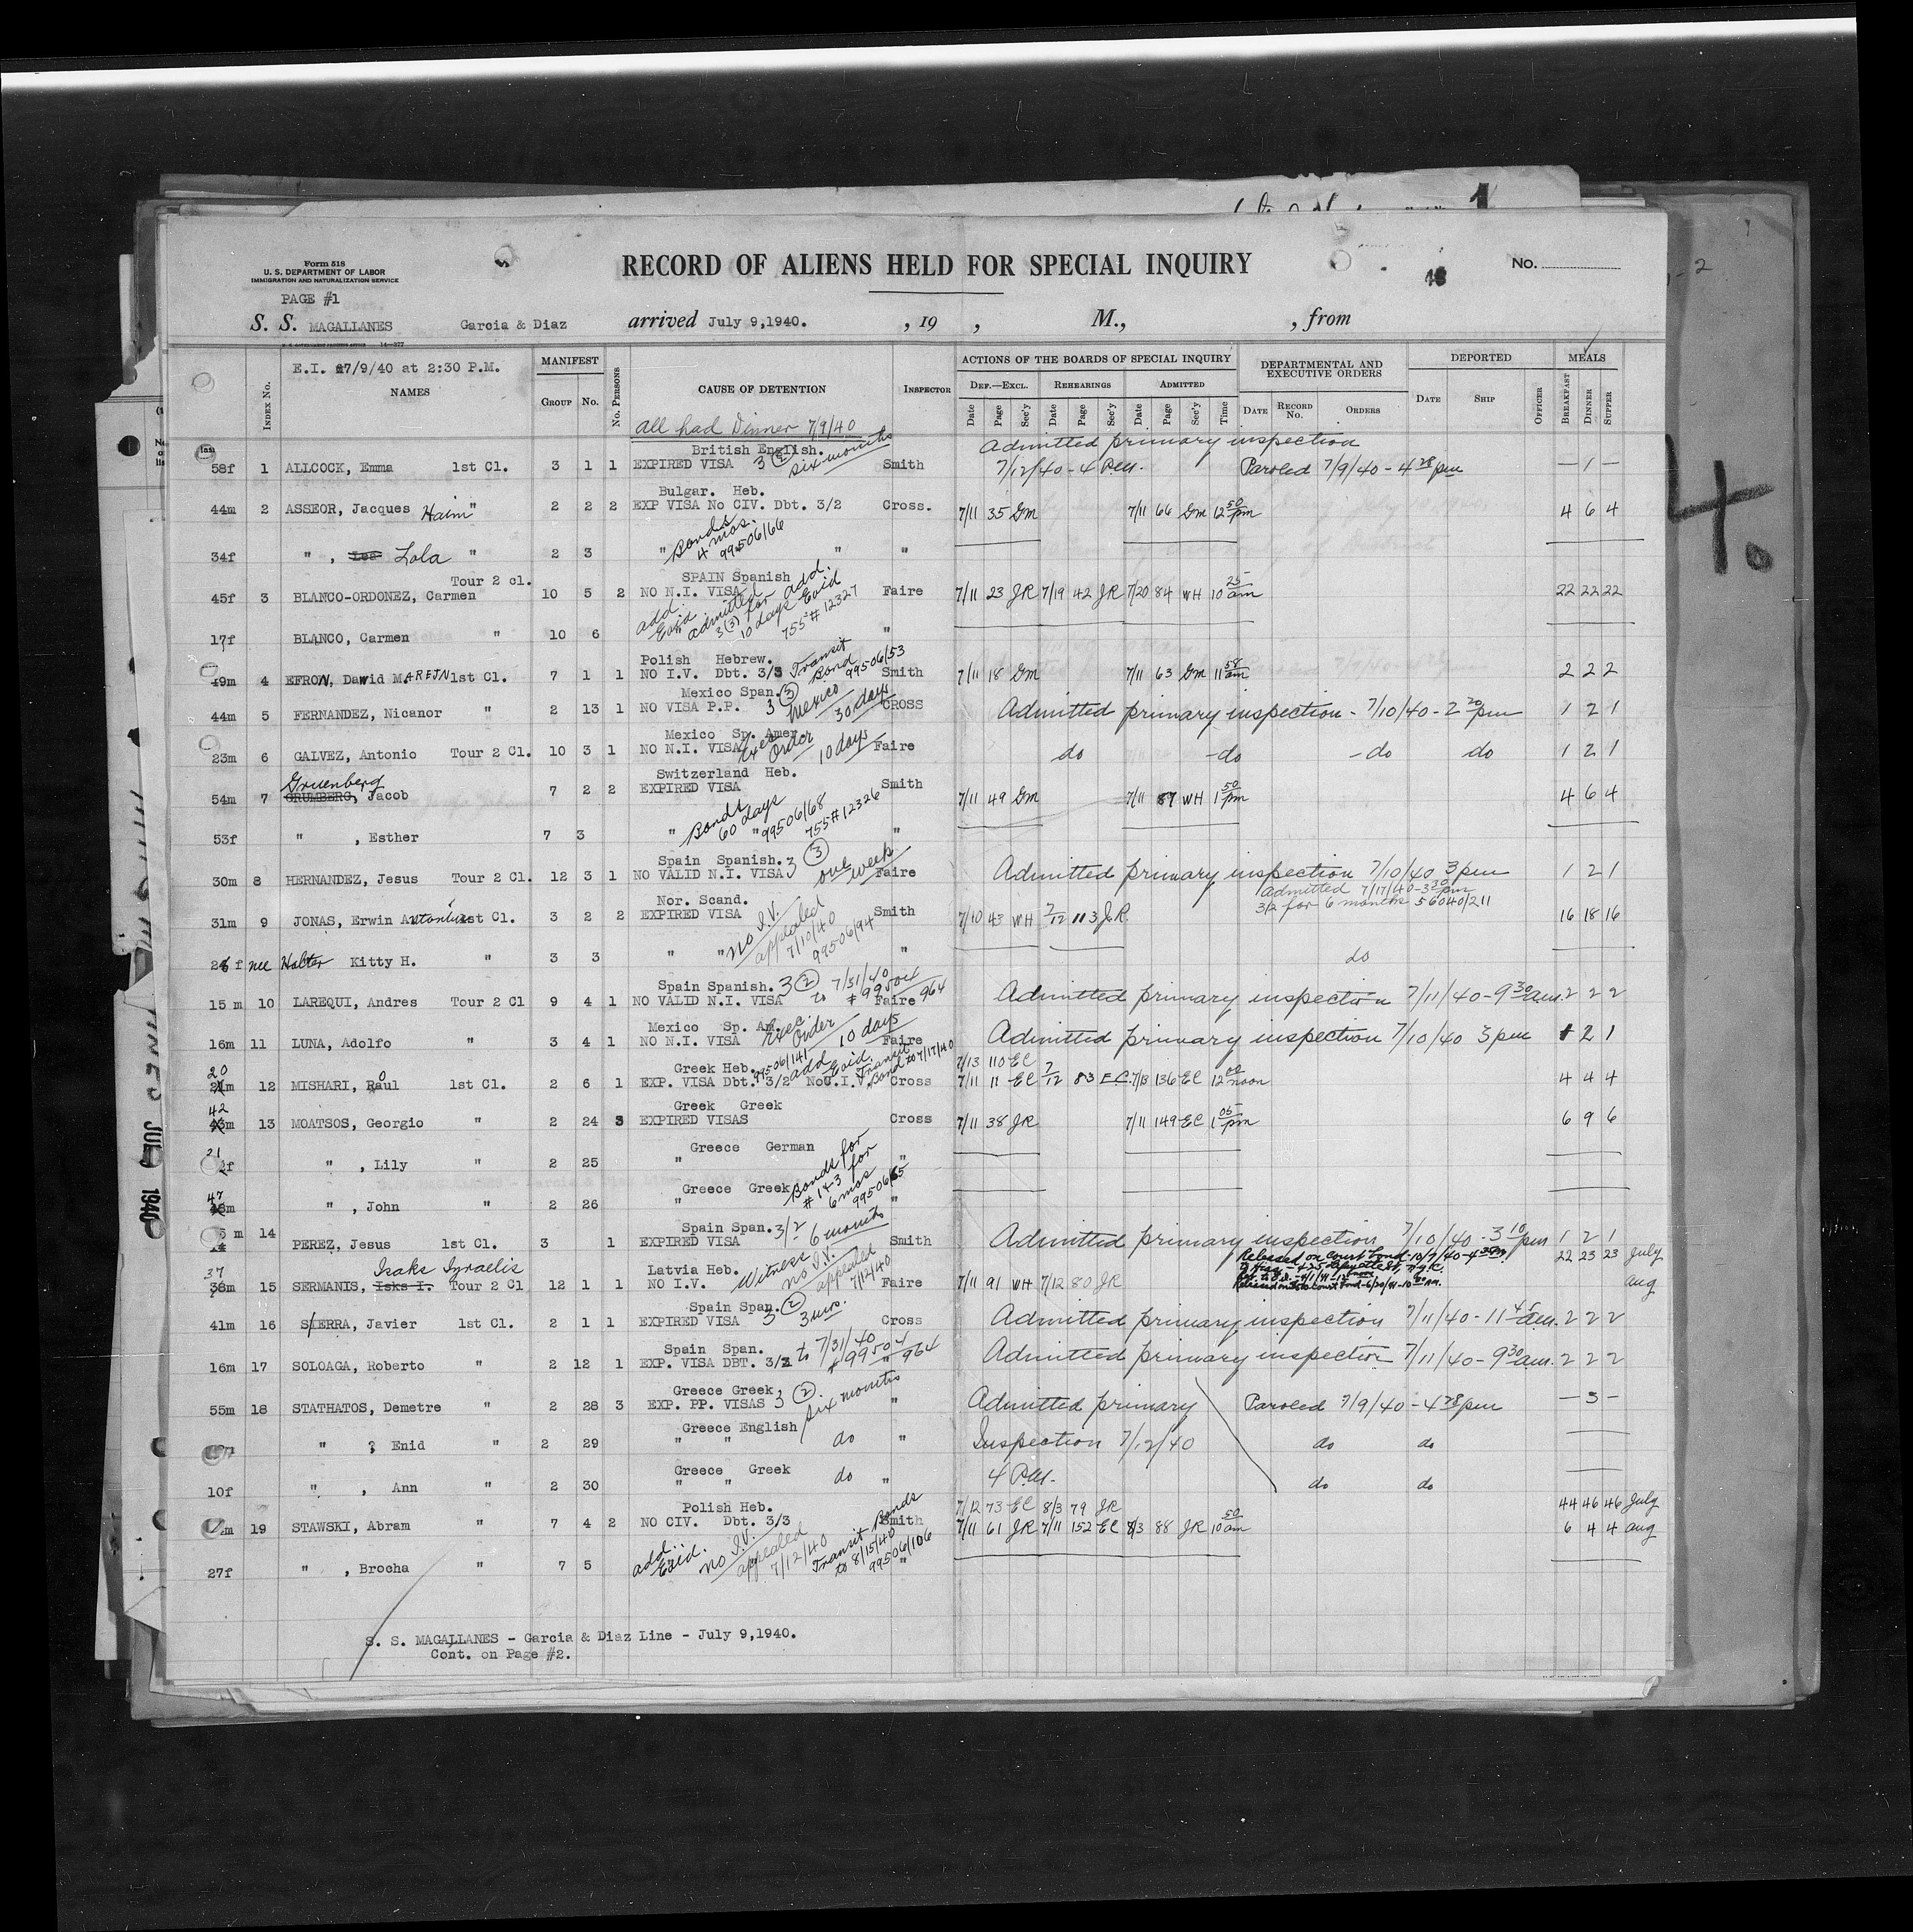 Form 518
U. S. DEPARTMENT OF LABOR
IMMIGRATION AND NATURALIZATION SERVICE
RECORD OF ALIENS HELD FOR SPECIAL INQUIRY
No.
PAGE #1
S. S. MAGALLANES Garcia & Diaz arrived July 9,1940. , 19 , M., , from
14—377
E.I. 7/9/40 at 2:30 P.M.
MANIFEST
ACTIONS OF THE BOARDS OF SPECIAL INQUIRY
DEPARTMENTAL AND EXECUTIVE ORDERS
DEPORTED
MEALS
Index No. NAMES Group No. No. Persons CAUSE OF DETENTION Inspector Def.—Excl. Rehearings Admitted
Date Page Sec'y Date Page Sec'y Date Page Sec'y Time Date Record No. Orders Date Ship Officer Breakfast Dinner Supper
All had Dinner 7/9/40
British English. Admitted primary inspection
58f 1 ALLCOCK, Emma 1st Cl. 3 1 1 EXPIRED VISA 3 (2) six months Smith 7/12/40 - 4 P.M. Paroled 7/9/40 - 4 28 pm — 1 —
Bulgar. Heb.
44m 2 ASSEOR, Jacques Haim " 2 2 2 EXP VISA No CIV. Dbt. 3/2 Cross. 7/11 35 GM 7/11 66 GM 12 50 pm 4 6 4
Bonds 4 mos. 99506/66
34f " , Lea Lola " 2 3 " " "
Tour 2 cl. SPAIN Spanish
45f 3 BLANCO-ORDONEZ, Carmen 10 5 2 NO N.I. VISA Faire 7/11 23 JR 7/19 42 JR 7/20 84 WH 10 25 am 22 22 22
add. Evid admitted 3(3) for add. 10 days Evid 755#12327
17f BLANCO, Carmen " 10 6 " "
Polish Hebrew. Transit Bond 99506/53
19m 4 EFRON, Dawid MAREJN 1st Cl. 7 1 1 NO I.V. Dbt. 3/3 Smith 7/11 18 GM 7/11 63 GM 11 58 am 2 2 2
Mexico Span.
44m 5 FERNANDEZ, Nicanor " 2 13 1 NO VISA P.P. 3 (3) Mexico 30 days CROSS Admitted primary inspection - 7/10/40 - 2 20 pm 1 2 1
Mexico Sp. Amer
23m 6 GALVEZ, Antonio Tour 2 Cl. 10 3 1 NO N.I. VISA Exec Order 10 days Faire do - do - do do 1 2 1
Gruenberg Switzerland Heb.
54m 7 GRUMBERG, Jacob 7 2 2 EXPIRED VISA Smith 7/11 49 GM 7/11 87 WH 1 50 pm 4 6 4
Bonds 60 days 99506/68 755#12326
53f " , Esther 7 3 " " "
Spain Spanish.
30m 8 HERNANDEZ, Jesus Tour 2 Cl. 12 3 1 NO VALID N.I. VISA 3 (3) one week Faire Admitted primary inspection 7/10/40 3 pm 1 2 1
Nor. Scand. Admitted 7/17/40 - 3 30 pm
31m 9 JONAS, Erwin Antonius 1st Cl. 3 2 2 EXPIRED VISA Smith 7/10 43 WH 7/12 113 JR 3/2 for 6 months 56040/211 16 18 16
no I.V. appealed 7/10/40 99506/94
f nee Halter Kitty H. " 3 3 " " " do
Spain Spanish. 3 (2) to 7/31/40 # 99504/964
15 m 10 LAREQUI, Andres Tour 2 Cl 9 4 1 NO VALID N.I. VISA Faire Admitted primary inspection 7/11/40 - 9 30 am. 2 2 2
Mexico Sp. Am.
16m 11 LUNA, Adolfo " 3 4 1 NO N.I. VISA Exec. Order 10 days Faire Admitted primary inspection 7/10/40 3 pm 1 2 1
20 Greek Heb. 99506/141 add Evid. Transit Bond to 7/17/40 7/13 110 EC
21m 12 MISHARI, Raoul 1st Cl. 2 6 1 EXP. VISA Dbt. 3/2 No C.I.V. Cross 7/11 11 EC 7/12 83 EC 7/13 136 EC 12 00 noon 4 4 4
42 Greek Greek
43m 13 MOATSOS, Georgio " 2 24 3 EXPIRED VISAS Cross 7/11 38 JR 7/11 149 EC 1 05 pm 6 9 6
21 Greece German
f " , Lily " 2 25 " "
47 Greece Greek Bonds for #1+3 for 6 mos 99506/65
48m " , John " 2 26 " "
Spain Span. 3/2 6 months
m 14 PEREZ, Jesus 1st Cl. 3 1 EXPIRED VISA Smith Admitted primary inspection 7/10/40 - 3 10 pm 1 2 1
Isaks Izraelis Latvia Heb. Witness no I.V. appealed 7/12/40 Released on Court bond - 10/7/40 - 4 22 23 23 July
37
38m 15 SERMANIS, Isks I. Tour 2 Cl 12 1 1 NO I.V. Faire 7/11 91 WH 7/12 80 JR Aug
Spain Span.
41m 16 SIERRA, Javier 1st Cl. 2 1 1 EXPIRED VISA 3 (2) 3 mos. Cross Admitted primary inspection 7/11/40 - 11 45 am. 2 2 2
Spain Span. to 7/31/40 # 99504/964
16m 17 SOLOAGA, Roberto " 2 12 1 EXP. VISA DBT. 3/2 " Admitted primary inspection 7/11/40 - 9 30 am. 2 2 2
Greece Greek
55m 18 STATHATOS, Demetre " 2 28 3 EXP. PP. VISAS 3 (2) six months " Admitted primary Paroled 7/9/40 - 4 28 pm — 3 —
Greece English
" , Enid " 2 29 " " do " Inspection 7/12/40 do do
Greece Greek
10f " , Ann " 2 30 " " do " 4 P.M. do do
Polish Heb. 7/12 73 EC 8/3 79 JR 44 46 46 July
m 19 STAWSKI, Abram " 7 4 2 NO CIV. Dbt. 3/3 Smith 7/11 61 JR 7/11 152 EC 8/3 88 JR 10 50 am 6 4 4 Aug
add. Evid. no I.V. appealed 7/12/40 Transit Bonds to 8/15/40 99506/106
27f " , Brocha " 7 5 "
S. S. MAGALLANES - Garcia & Diaz Line - July 9,1940.
Cont. on Page #2.
4.
JUL 9 1940